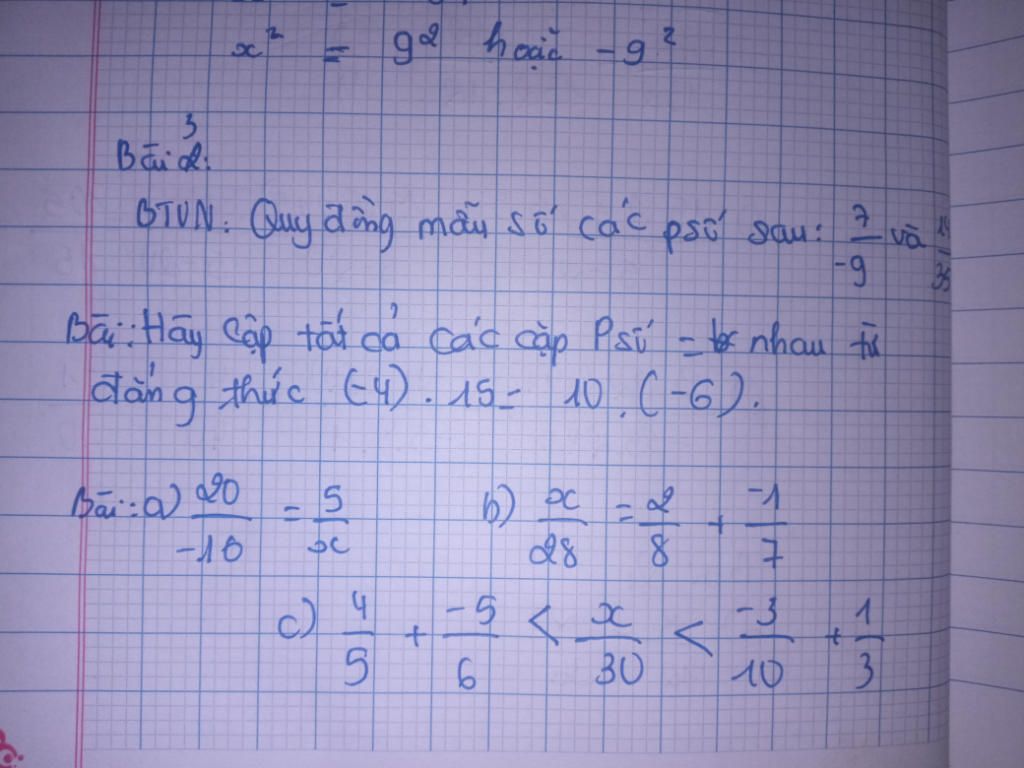 x² = 9² hoặc -9²
3
Bài 2:
BTVN: Quy đồng mẫu số các psố sau: 7/-9 và
Bài: Hãy lập tất cả các cặp Psố = nhau từ
đẳng thức (-4). 15 = 10. (-6).
Bài: a) 20/-10 = 5/x b) x/28 = 2/8 + -1/7
c) 4/5 + -5/6 < x/30 < -3/10 + 1/3